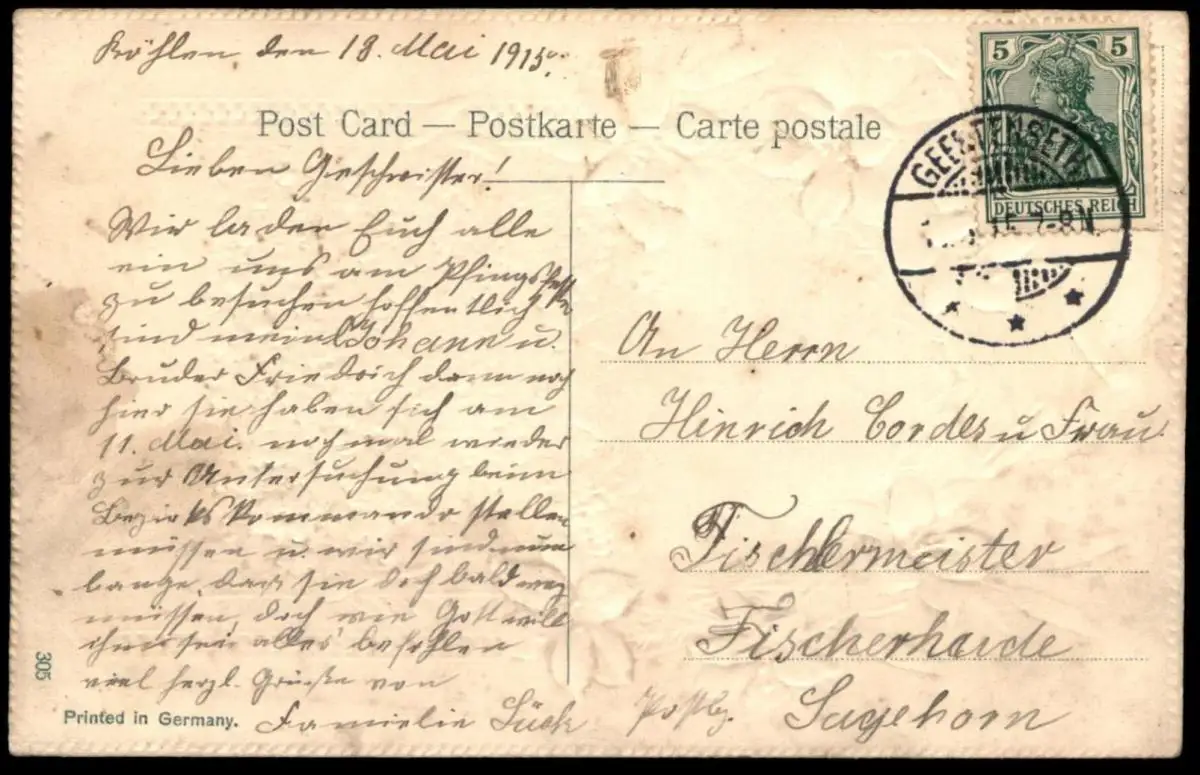 Köhlen, den 18. Mai 1915.
Post Card — Postkarte — Carte postale
Lieben Geschwister!
Wir laden Euch alle
ein uns am Pfingstfeste
zu besuchen hoffentlich
sind mein Johann u.
Bruder Friedrich dann noch
hier sie haben sich am
11. Mai. nochmal wieder
zur Untersuchung beim
Bezirkskommando stellen
müssen u. wir sind nun
bange, das sie doch bald weg
müssen, doch wie Gott will
ihm sei alles befohlen
viel herzl. Grüße von
Familie Lück
Printed in Germany.
305
5 5
DEUTSCHES REICH
GEESTENSETH
7-8N.
An Herrn
Hinrich Cordes u Frau
Tischlermeister
Fischerhaide
Postbz. Sagehorn